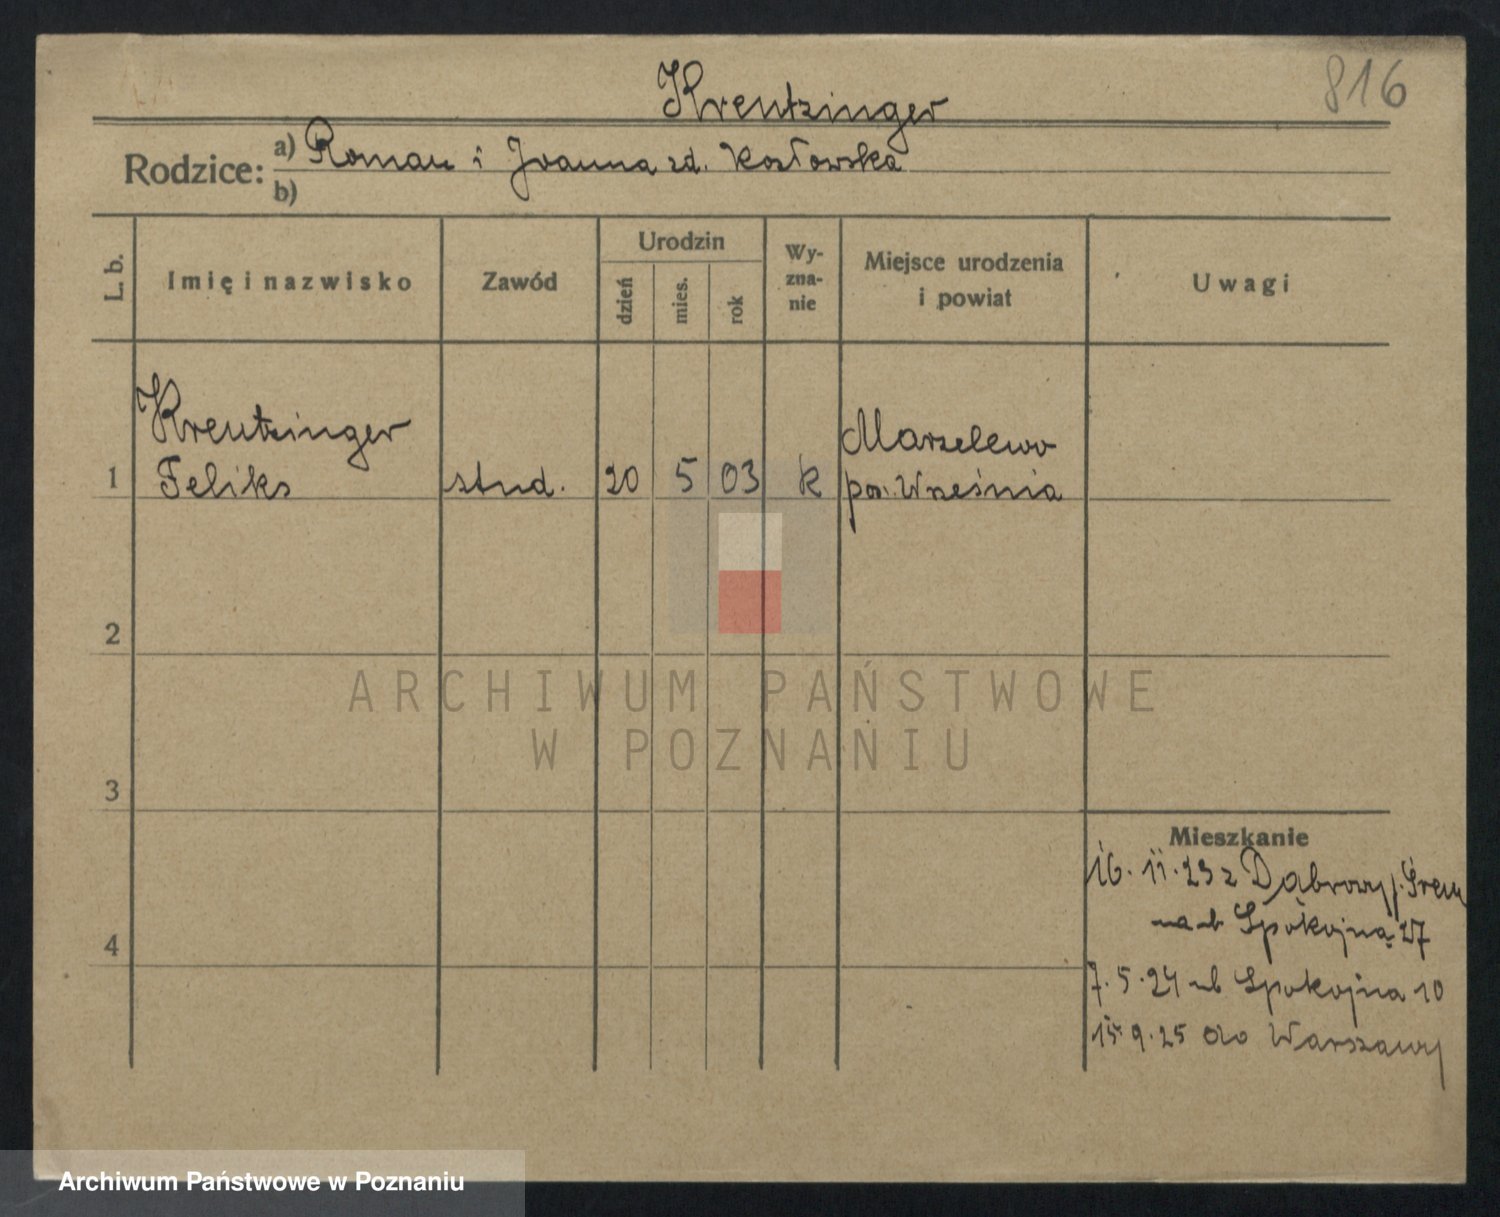 816
Kreutzinger
Rodzice: a) Roman i Joanna zd. Kozłowska
b)
L. b.
Imię i nazwisko
Zawód
Urodzin
dzień
mies.
rok
Wy-
zna-
nie
Miejsce urodzenia
i powiat
Uwagi
Kreutzinger
Marzelewo
1 Feliks stud. 20 5 03 k pow. Września
2
3
4
Mieszkanie
16.11.23 z Dąbrowy p. Śrem
na ul Spokojną 27
7.5.24 ul Spokojna 10
15.9.25 do Warszawy
ARCHIWUM PAŃSTWOWE
W POZNANIU
Archiwum Państwowe w Poznaniu